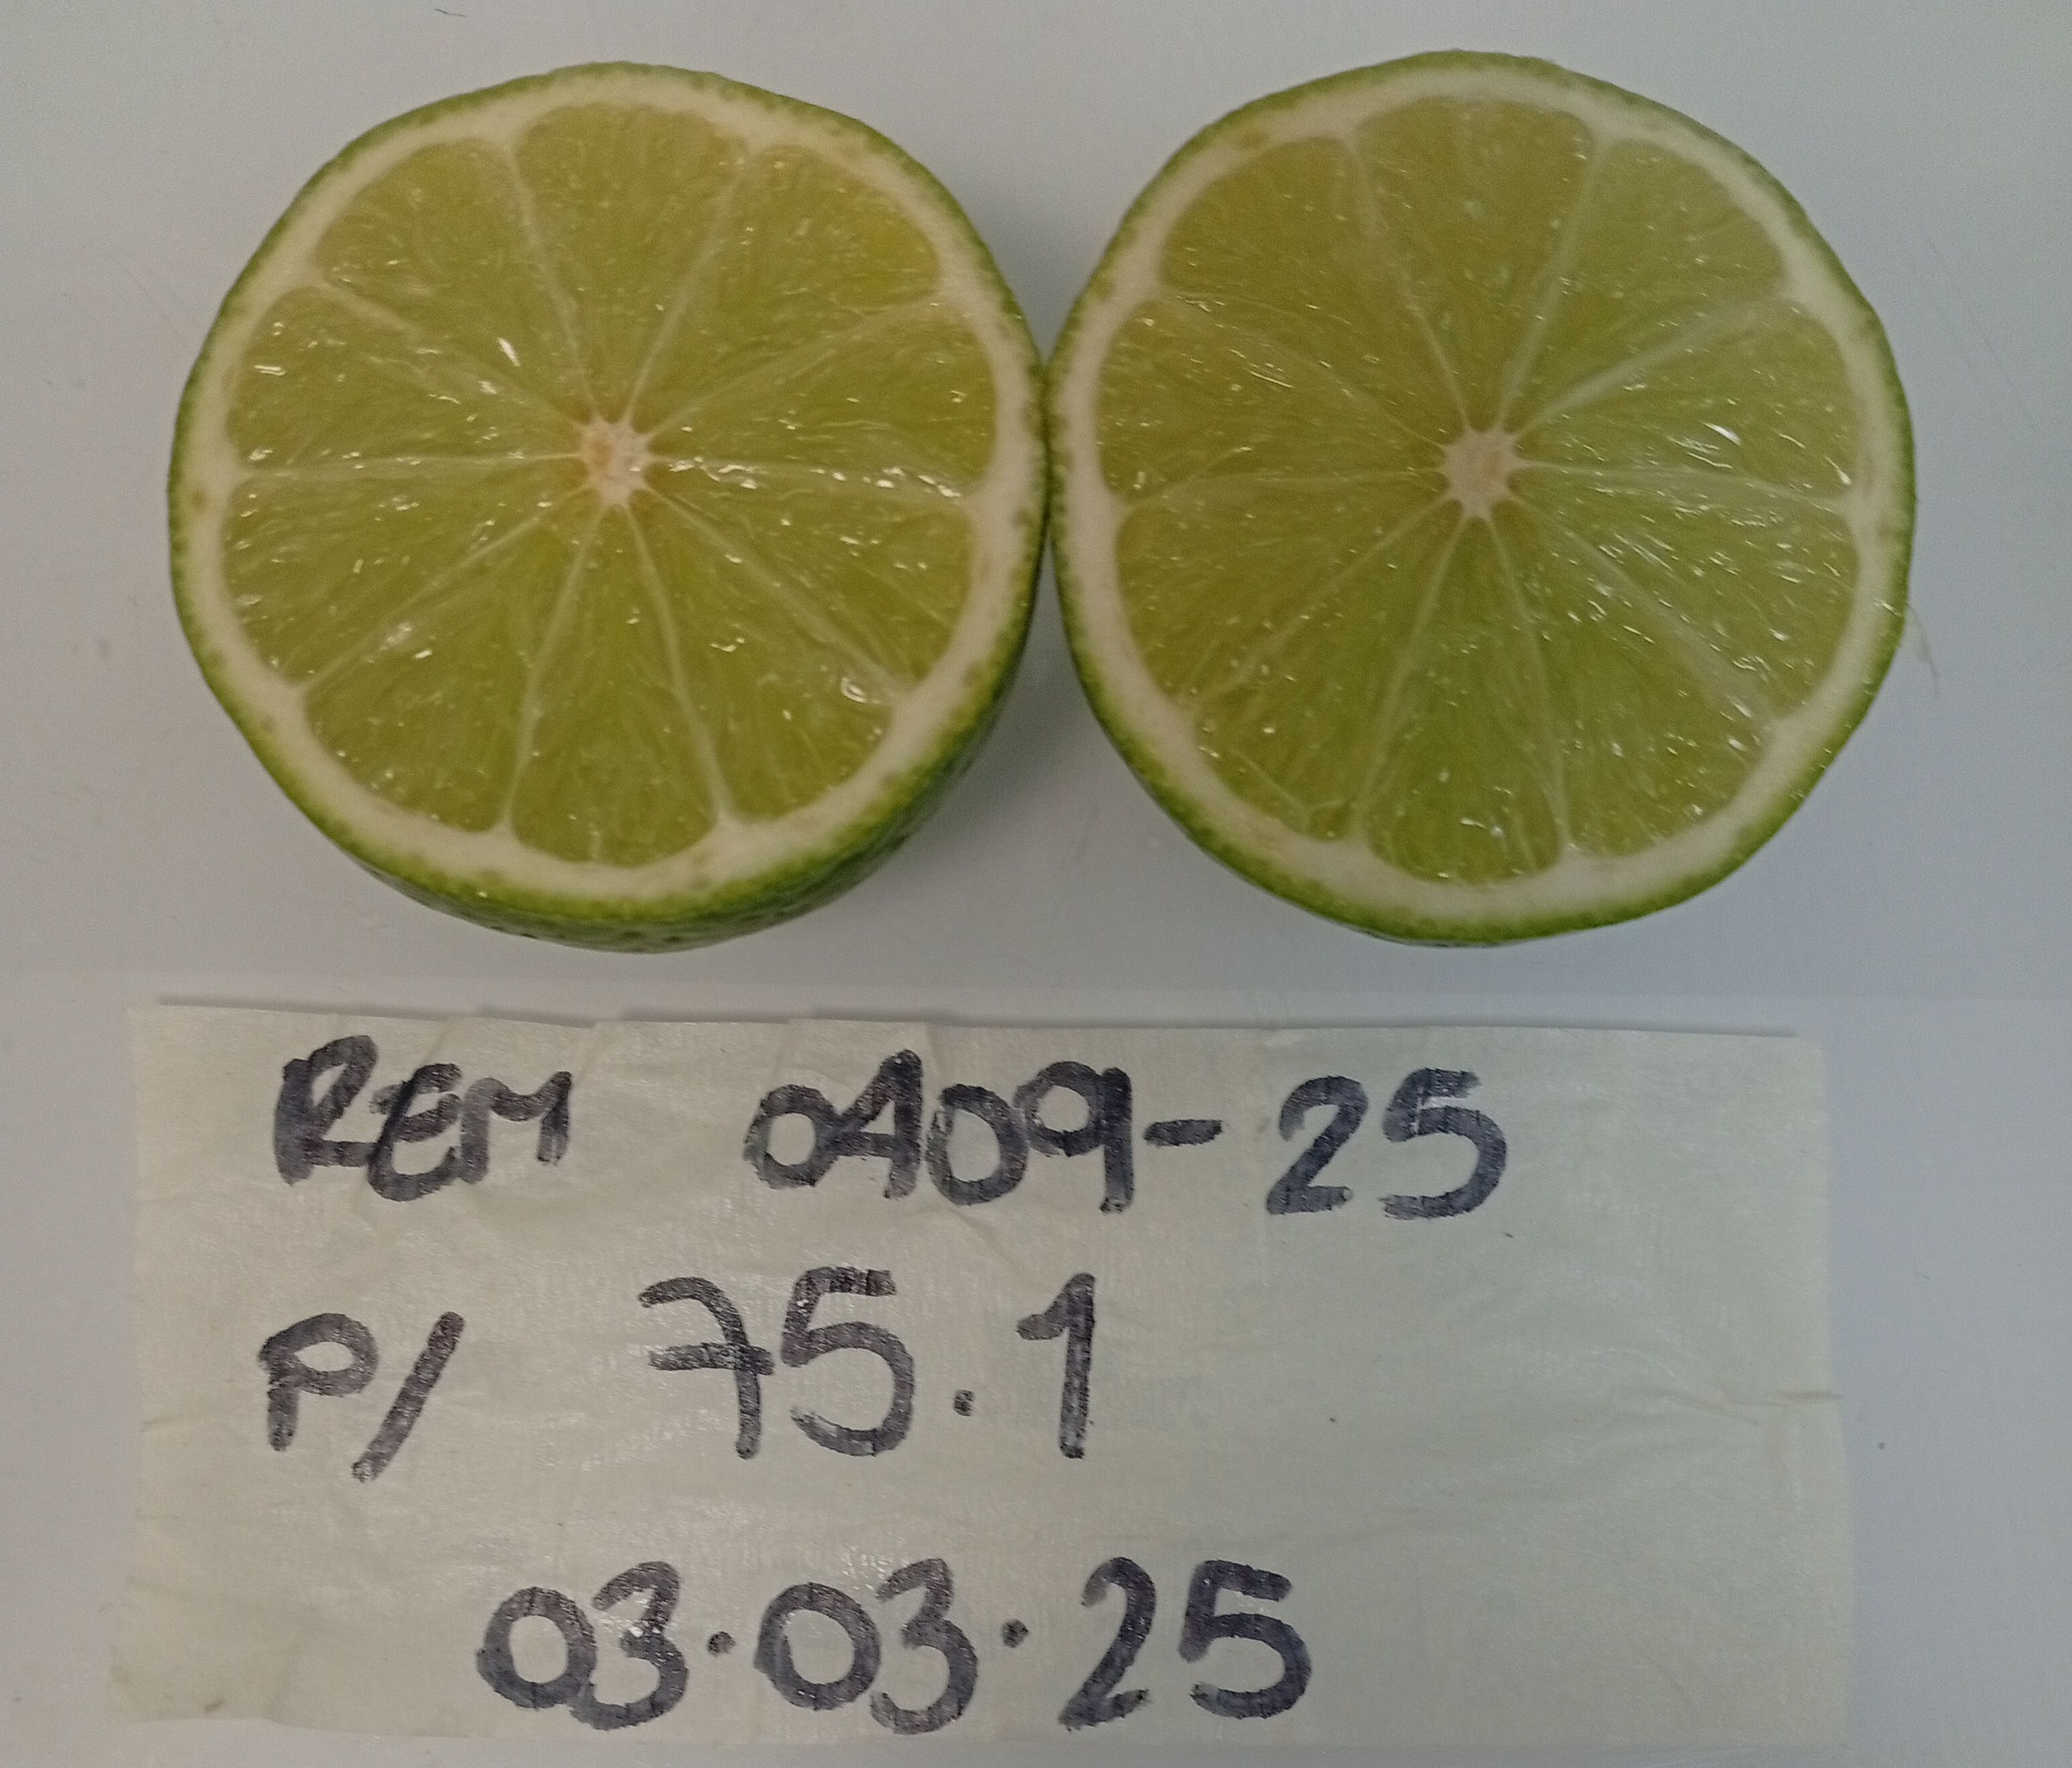 REM 0409-25
P/ 75.1
03.03.25